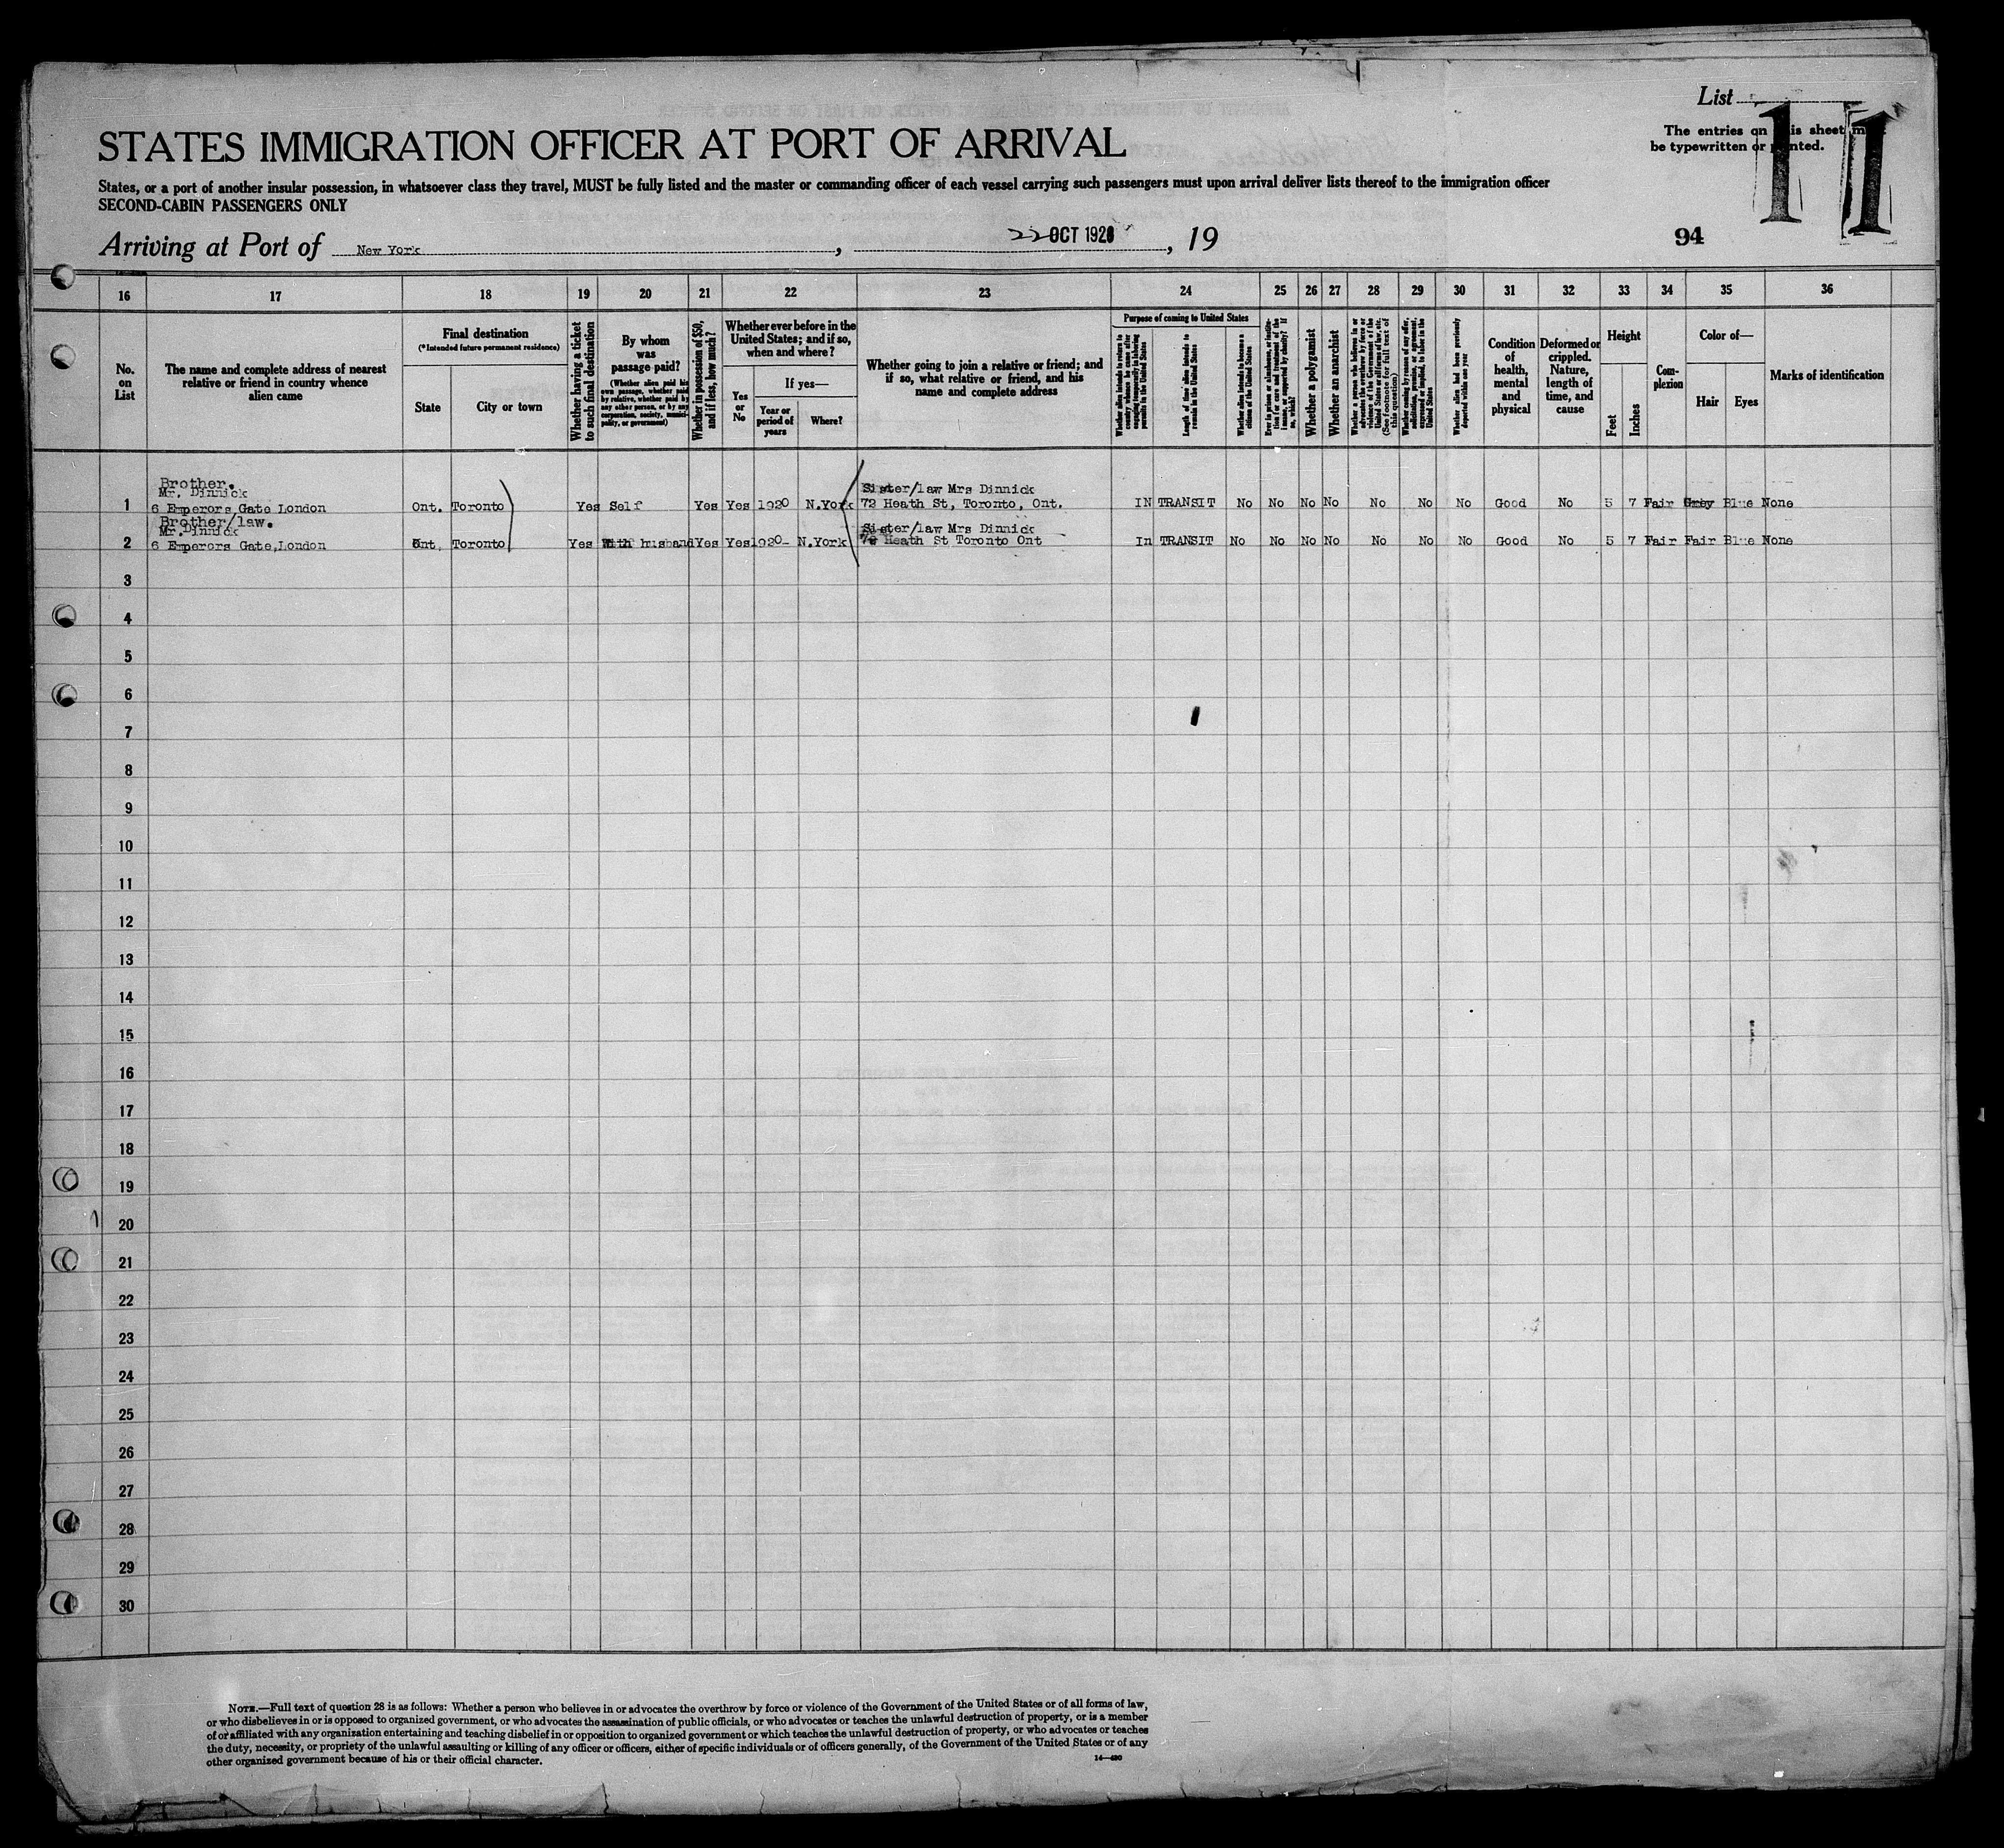 List
11
The entries on this sheet must
be typewritten or printed.
STATES IMMIGRATION OFFICER AT PORT OF ARRIVAL
States, or a port of another insular possession, in whatsoever class they travel, MUST be fully listed and the master or commanding officer of each vessel carrying such passengers must upon arrival deliver lists thereof to the immigration officer
SECOND-CABIN PASSENGERS ONLY
Arriving at Port of New York, 22 OCT 1926, 19
94
16 17 18 19 20 21 22 23 24 25 26 27 28 29 30 31 32 33 34 35 36
No.
on
List
The name and complete address of nearest
relative or friend in country whence
alien came
Final destination
(*Intended future permanent residence)
State
City or town
Whether having a ticket
to such final destination
By whom
was
passage paid?
(Whether alien paid his
own passage, whether paid
by relative, whether paid by
any other person, or by any
corporation, society, munici-
pality, or government)
Whether in possession of $50,
and if less, how much?
Whether ever before in the
United States; and if so,
when and where?
Yes
or
No
If yes—
Year or
period of
years
Where?
Whether going to join a relative or friend; and
if so, what relative or friend, and his
name and complete address
Purpose of coming to United States
Whether alien intends to return to
country whence he came after
engaging temporarily in laboring
pursuits in the United States
Length of time alien intends to
remain in the United States
Whether alien intends to become a
citizen of the United States
Ever in prison or almshouse, or institu-
tion for care and treatment of the
insane, or supported by charity? If
so, which?
Whether a polygamist
Whether an anarchist
Whether a person who believes in or
advocates the overthrow by force or
violence of the Government of the
United States or all forms of law, etc.
(See footnote for full text of
this question)
Whether coming by reason of any offer,
solicitation, promise, or agreement,
expressed or implied, to labor in the
United States
Whether alien had been previously
deported within one year
Condition
of
health,
mental
and
physical
Deformed or
crippled.
Nature,
length of
time, and
cause
Height
Feet
Inches
Com-
plexion
Color of—
Hair
Eyes
Marks of identification
Brother.
Mr. Dinnick
Sister/law Mrs Dinnick
1 6 Emperors Gate London Ont. Toronto Yes Self Yes Yes 1920 N.York 72 Heath St, Toronto, Ont. IN TRANSIT No No No No No No No Good No 5 7 Fair Grey Blue None
Brother/law.
Mr. Dinnick
Sister/law Mrs Dinnick
2 6 Emperors Gate, London Ont. Toronto Yes With husband Yes Yes 1920- N.York 72 Heath St Toronto Ont In TRANSIT No No No No No No No Good No 5 7 Fair Fair Blue None
3
4
5
6
7
8
9
10
11
12
13
14
15
16
17
18
19
20
21
22
23
24
25
26
27
28
29
30
NOTE.—Full text of question 28 is as follows: Whether a person who believes in or advocates the overthrow by force or violence of the Government of the United States or of all forms of law,
or who disbelieves in or is opposed to organized government, or who advocates the assassination of public officials, or who advocates or teaches the unlawful destruction of property, or is a member
of or affiliated with any organization entertaining and teaching disbelief in or opposition to organized government or which teaches the unlawful destruction of property, or who advocates or teaches
the duty, necessity, or propriety of the unlawful assaulting or killing of any officer or officers, either of specific individuals or of officers generally, of the Government of the United States or of any
other organized government because of his or their official character.
14—430